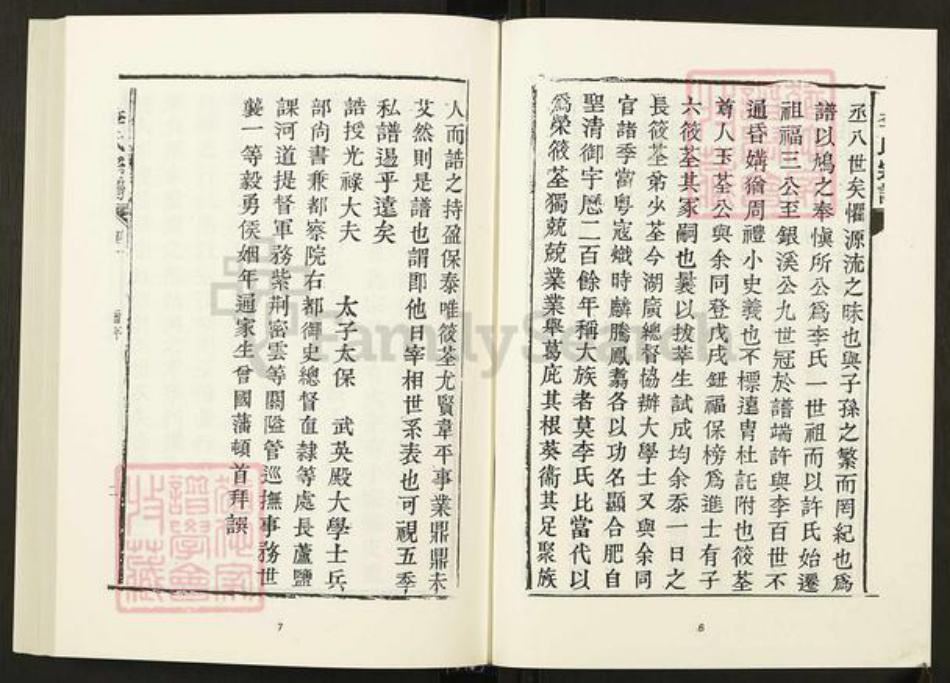 丞八世矣懼源流之昧也與子孫之繁而罔紀也爲
譜以鳩之奉愼所公爲李氏一世祖而以許氏始遷
祖福三公至銀溪公九世冠於譜端許與李百世不
通昏媾猶周禮小史義也不標遠胄杜託附也筱荃
尊人玉荃公與余同登戊戌鈕福保榜爲進士有子
六筱荃其冢嗣也曩以拔萃生試成均余忝一日之
長筱荃弟少荃今湖廣總督協辦大學士又與余同
官諸季當粵寇熾時麟騰鳳翥各以功名顯合肥自
聖清御宇歷二百餘年稱大族者莫李氏比當代以
爲榮筱荃獨兢兢業業舉葛庇其根葵衞其足聚族
6
人而誥之持盈保泰唯筱荃尤賢韋平事業鼎鼎未
艾然則是譜也謂卽他日宰相世系表也可視五季
私譜逷乎遠矣
誥授光祿大夫 太子太保 武英殿大學士兵
部尙書兼都察院右都御史總督直隸等處長蘆鹽
課河道提督軍務紫荆密雲等關隘管巡撫事務世
襲一等毅勇侯姻年通家生曾國藩頓首拜譔
7
FamilySearch